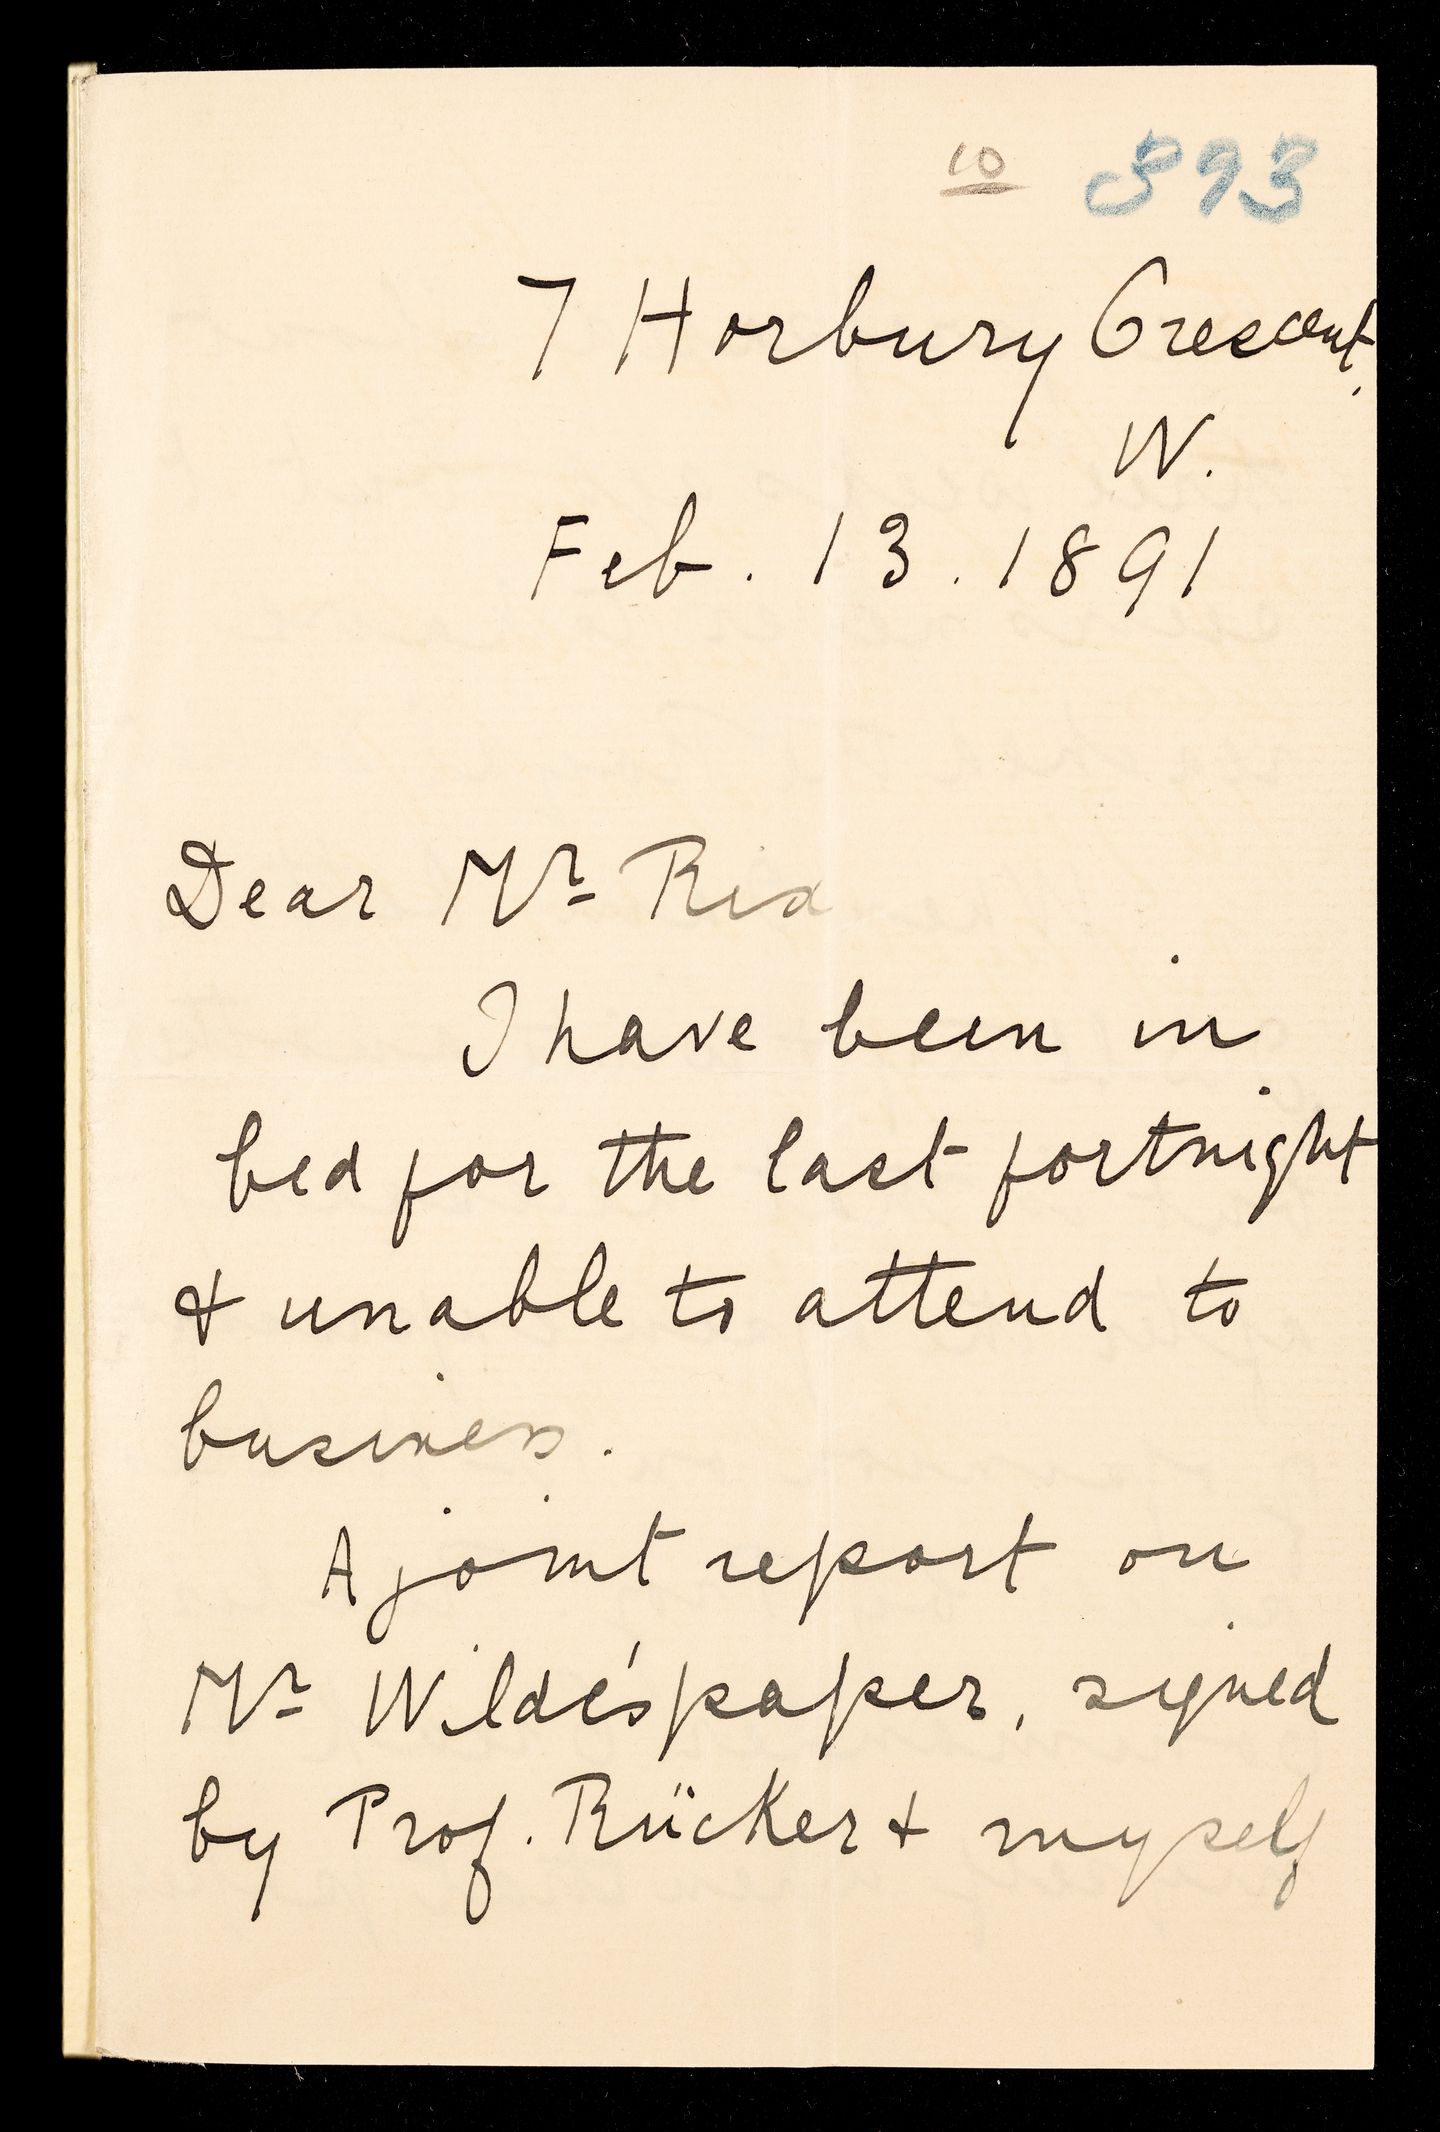 10 393
7 Horbury Crescent,
W.
Feb. 13. 1891
Dear Mr Rix
I have been in
bed for the last fortnight
& unable to attend to
business.
A joint report on
Mr Wilde's paper, signed
by Prof. Rücker & myself